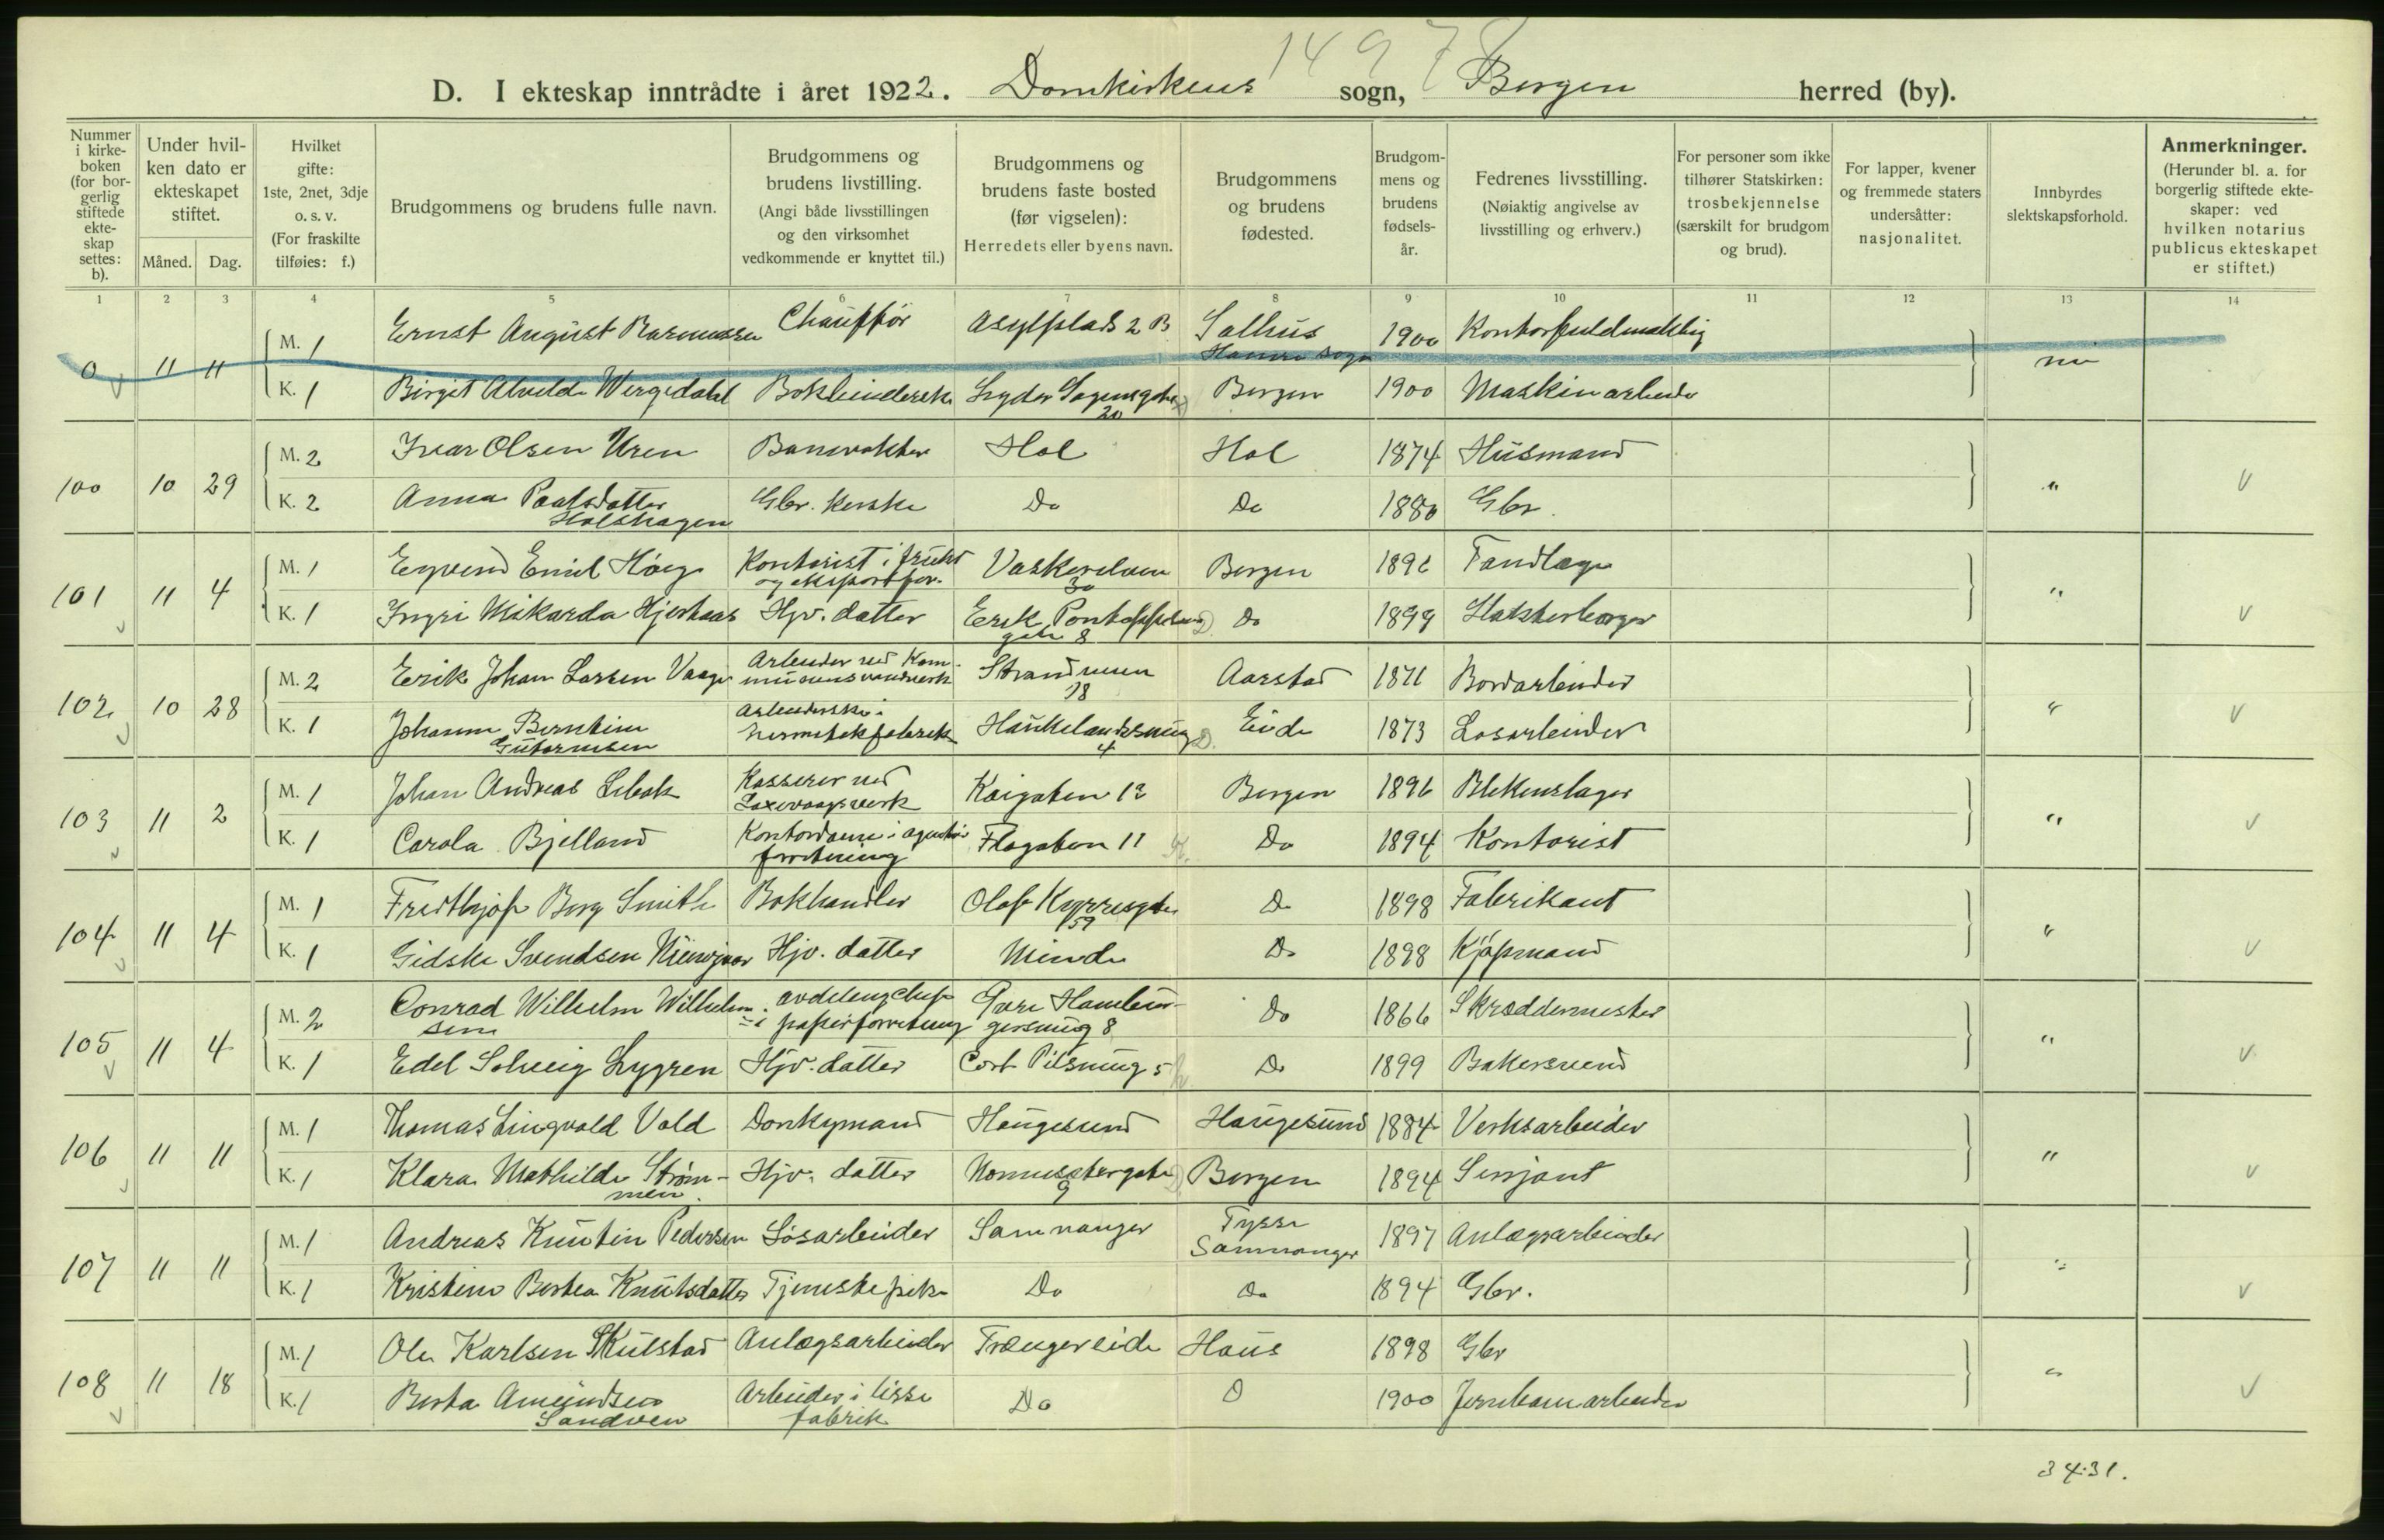 1497
D. I ekteskap inntrådte i året 1922. Domkirkens sogn, Bergen herred (by).
Nummer i kirkeboken (for borgerlig stiftede ekteskap settes: b).
Under hvilken dato er ekteskapet stiftet.
Måned. Dag.
Hvilket gifte: 1ste, 2net, 3dje o. s. v. (For fraskilte tilføies: f.)
Brudgommens og brudens fulle navn.
Brudgommens og brudens livstilling. (Angi både livsstillingen og den virksomhet vedkommende er knyttet til.)
Brudgommens og brudens faste bosted (før vigselen): Herredets eller byens navn.
Brudgommens og brudens fødested.
Brudgommens og brudens fødselsår.
Fedrenes livsstilling. (Nøiaktig angivelse av livsstilling og erhverv.)
For personer som ikke tilhører Statskirken: trosbekjennelse (særskilt for brudgom og brud).
For lapper, kvener og fremmede staters undersåtter: nasjonalitet.
Innbyrdes slektskapsforhold.
Anmerkninger. (Herunder bl. a. for borgerlig stiftede ekteskaper: ved hvilken notarius publicus ekteskapet er stiftet.)
1 2 3 4 5 6 7 8 9 10 11 12 13 14
0 11 11 M. 1 Ernst August Rasmussen Chauffør Asylplads 2 B Salhus Hamre sogn 1900 Kontorfuldmektig
K. 1 Birgit Alvilde Wergedahl Bokbinderske Lyder Sagensgate 20 Bergen 1900 Maskinarbeider
nei
100 10 29 M. 2 Ivar Olsen Uren Banevokter Hol Hol 1874 Husmand "
K. 2 Anna Paalsdatter Holshagen Gbr. kerske Do Do 1880 Gbr.
101 11 4 M. 1 Eyvind Emil Høeg Kontorist i frukt og eksportfor. Vaskerelven 30 Bergen 1892 Tandlæge "
K. 1 Yngri Mikarda Hjorthaas Hjv. datter Erik Pontoppidans gate 8 Do 1899 Slakterborger
102 10 28 M. 2 Erik Johan Larsen Vaage Arbeider ved Kommunens vandverk Strandveien 18 Aarstad 1871 Bordarbeider "
K. 1 Johanne Berntine Guttormsen Arbeiderske i hermetikfabrik Haukelandsveug 4 Eide 1873 Løsarbeider
103 11 2 M. 1 Johan Andreas Lebok Kasserer ved Laxevaagsverk Kaigaten 12 Bergen 1896 Blikenslager "
K. 1 Carola Bjelland Kontordame i agentur forretning Flagaten 11 Do 1894 Kontorist
104 11 4 M. 1 Fredthjof Berg Smith Bokhandler Olaf Kyrresgate 59 Do 1898 Fabrikant "
K. 1 Gidske Svendsen Hjv. datter Minde Do 1898 Kjøpmand
105 11 4 M. 2 Conrad Wilhelm Wilhelmsen avdelingchef i papirforretning Øvre Hamburgersmug 8 Do 1866 Skræddermester "
K. 1 Edel Solveig Lygren Hjv. datter Cort Pilsmug 5 Do 1899 Bakersvend
106 11 11 M. 1 Thomas Lingvald Vold Donkymand Haugesund Haugesund 1884 Verksarbeider "
K. 1 Klara Mathilde Strømmen Hjv. datter Nonnestergate 9 Bergen 1894 Sersjant
107 11 11 M. 1 Andreas Knutin Pedersen Løsarbeider Samnanger Tysse Samnanger 1897 Anlægsarbeider "
K. 1 Kristine Bertea Knutsdatter Tjenestepike Do Do 1894 Gbr.
108 11 18 M. 1 Ole Karlsen Skulstad Anlægsarbeider Trængereide Haus 1898 Gbr "
K. 1 Berta Amundsen Sandven Arbeider i lisse fabrik Do D 1900 Jernbanearbeider
3431.